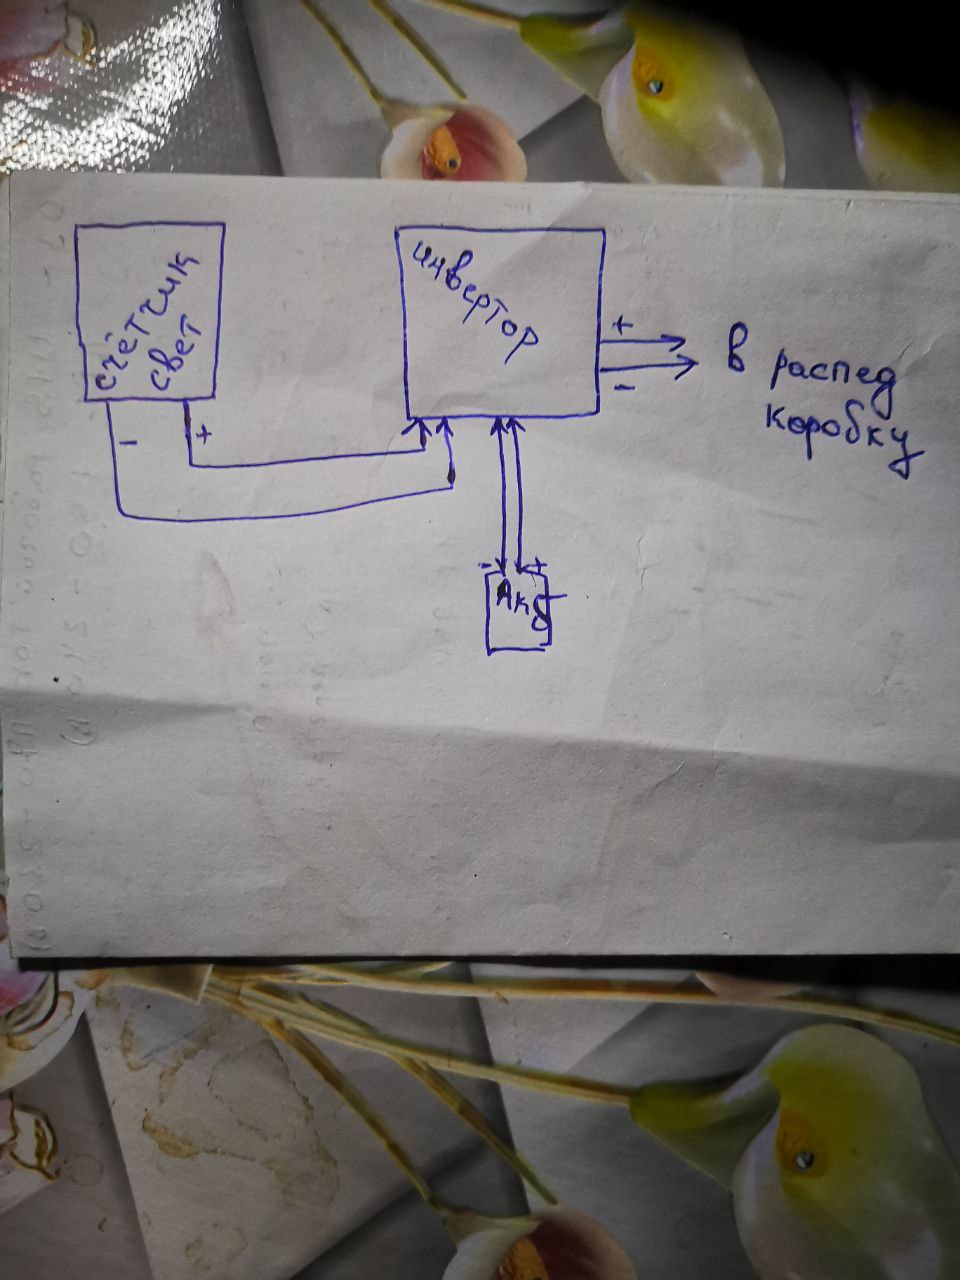 счётчик
свет
инвертор
- +
+
-
в распед
коробку
- +
Акб